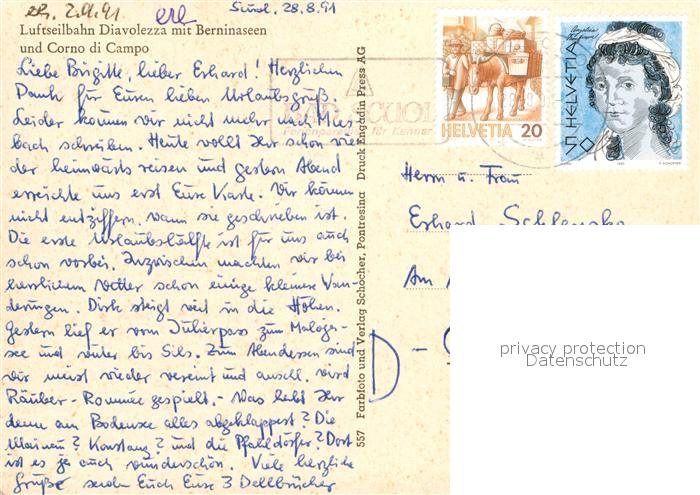 erh. 2.9.91 erl
Scuol. 28.8.91
Luftseilbahn Diavolezza mit Berninaseen
und Corno di Campo
Liebe Brigitte, lieber Erhard! Herzlichen
Dank für Euren lieben Urlaubsgruß.
Leider können wir nicht mehr nach Mies-
bach schreiben. Heute wollt Ihr schon wie
der heimwärts reisen und gestern Abend
erreichte uns erst Eure Karte. Wir können
nicht entziffern, wann sie geschrieben ist.
Die erste Urlaubshälfte ist für uns auch
schon vorbei. Inzwischen machten wir bei
herrlichem Wetter schon einige kleine Wan-
derungen. Dirk steigt viel in die Höhen.
Gestern lief er vom Julierpass zum Maloja-
see und weiter bis Sils. Zum Abendessen sind
wir meist wieder vereint und anschl. wird
Räuber-Rommée gespielt. - Was habt Ihr
denn am Bodensee alles abgeklappert? Die
Mainau? Konstanz? und die Pfahldörfer? Dort
ist es ja auch wunderschön. Viele herzliche
Grüße senden Euch Eure 3 Dellbrücher
557 Farbfoto und Verlag Schocher, Pontresina Druck Engadin Press AG
BAD SCUOL
Ferienparadies für Kenner
HELVETIA 20
HELVETIA 70
Herrn u. Frau
Erhard
Am
D-
privacy protection
Datenschutz